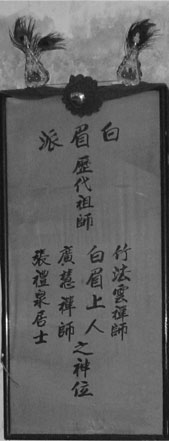 白眉派
歷代祖師
竺法雲禪師
白眉上人之神位
廣慧禪師
張禮泉居士